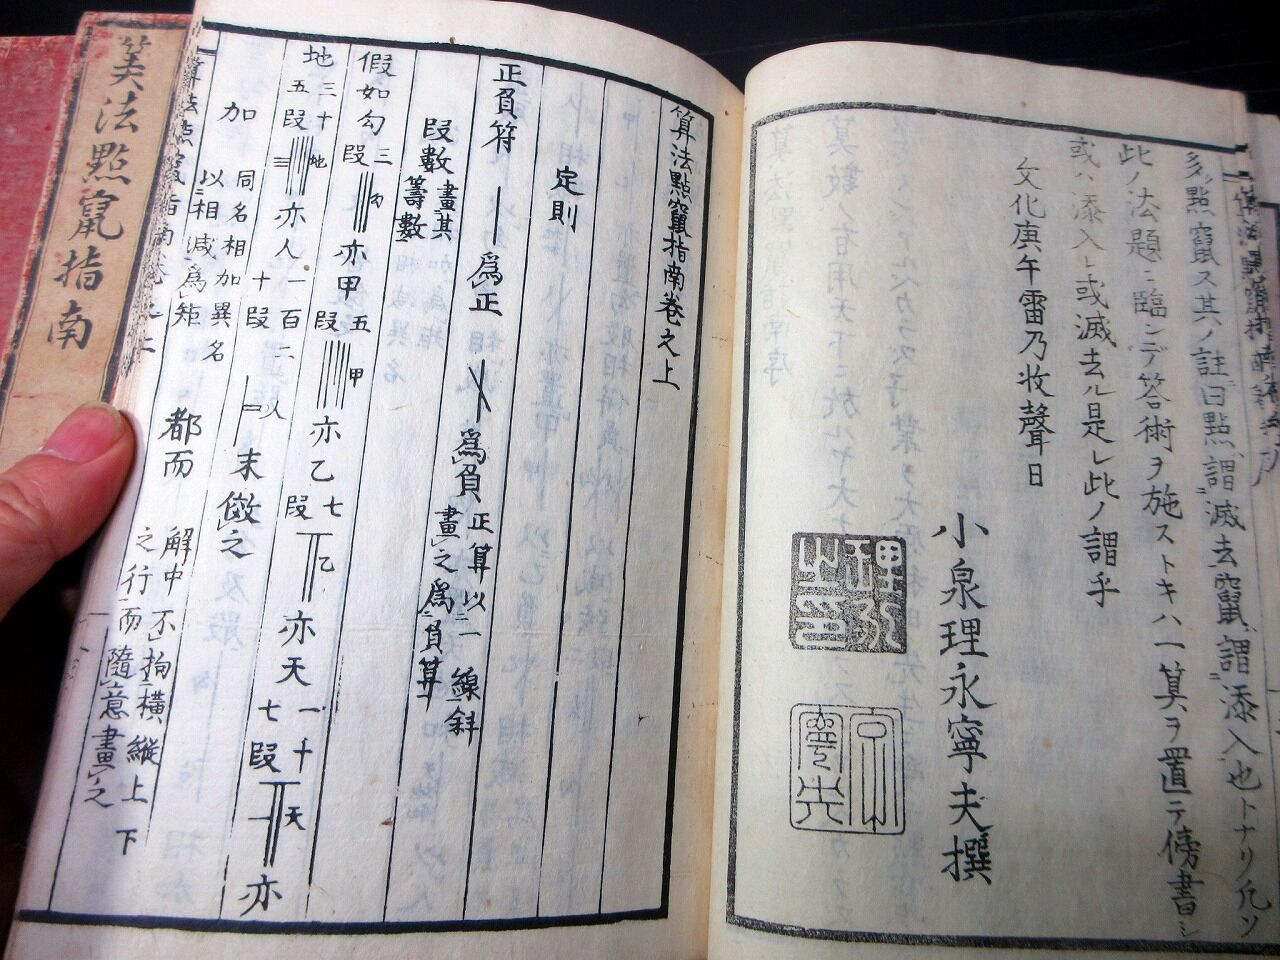 多ク點竄ス其ノ註曰點謂滅去竄謂添入也トナリ凡ソ
此ノ法題ニ臨ンデ答術ヲ施ストキハ一算ヲ置テ傍書シ
或ハ添入レ或滅去ル是レ此ノ謂乎
文化庚午雷乃收聲日
小泉理永寧夫撰
算法點竄指南卷之上
定則
正負符
爲正
爲負
正算以一線斜
畫之爲負算
段數
畫其
籌數
假如勾三
段
勾
亦甲五
段
甲
亦乙七
段
乙
亦天一十
七段
天
亦
地三十
五段
地
亦人一百二
十段
以
末倣之
加
同名相加異名
以相減爲矩
都而
解中不拘橫縱上下
之行而隨意畫之
算法點竄指南卷之上
算法點竄指南